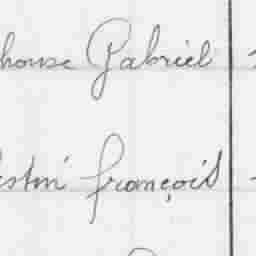 house Gabriel
estin françois